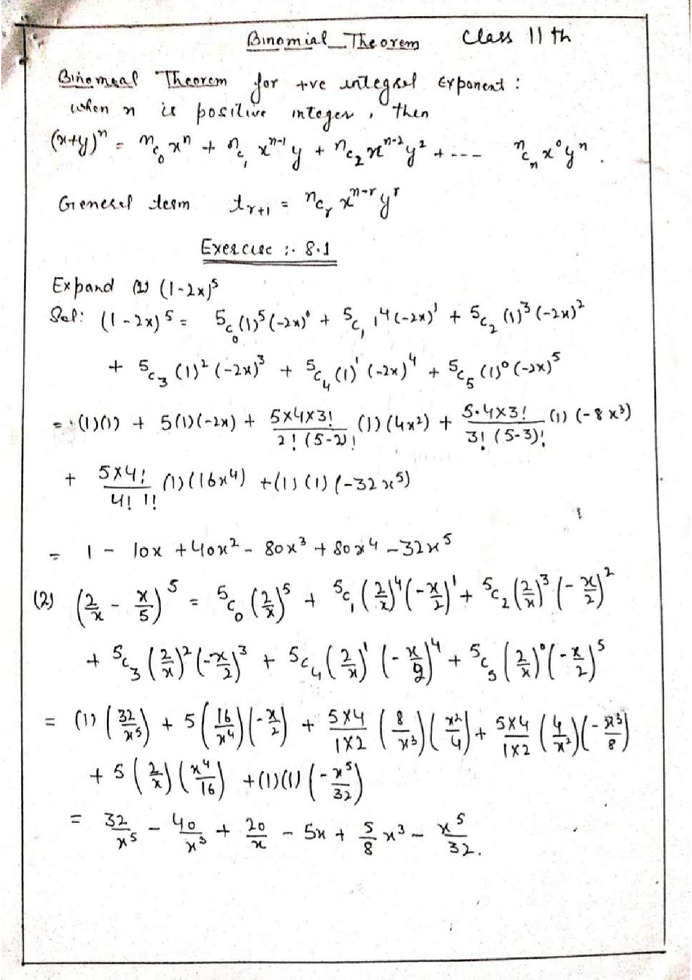 Binomial Theorem Class 11 th
Binomeal Theorem for +ve integral Exponent :
when n is positive integer, then
(x+y)ⁿ = ⁿc₀ xⁿ + ⁿc₁ xⁿ⁻¹y + ⁿc₂ xⁿ⁻²y² + --- ⁿcₙ x⁰yⁿ.
General term tᵣ₊₁ = ⁿcᵣ xⁿ⁻ʳyʳ
Exercise :- 8.1
Expand (1) (1-2x)⁵
Sol: (1-2x)⁵ = 5c₀(1)⁵(-2x)⁰ + 5c₁ 1⁴(-2x)¹ + 5c₂ (1)³(-2x)²
+ 5c₃ (1)² (-2x)³ + 5c₄ (1)¹ (-2x)⁴ + 5c₅ (1)⁰ (-2x)⁵
= (1)(1) + 5(1)(-2x) + 5×4×3!/2!(5-2)! (1)(4x²) + 5·4×3!/3!(5-3)! (1)(-8x³)
+ 5×4!/4! 1! (1)(16x⁴) + (1)(1)(-32x⁵)
= 1 - 10x + 40x² - 80x³ + 80x⁴ - 32x⁵
(2) (2/x - x/5)⁵ = ⁵c₀ (2/x)⁵ + ⁵c₁ (2/x)⁴(-x/2)¹ + ⁵c₂ (2/x)³(-x/2)²
+ ⁵c₃ (2/x)² (-x/2)³ + ⁵c₄ (2/x)¹ (-x/2)⁴ + ⁵c₅ (2/x)⁰(-x/2)⁵
= (1) (32/x⁵) + 5 (16/x⁴)(-x/2) + 5×4/1×2 (8/x³)(x²/4) + 5×4/1×2 (4/x²)(-x³/8)
+ 5 (2/x) (x⁴/16) + (1)(1) (-x⁵/32)
= 32/x⁵ - 40/x³ + 20/x - 5x + 5/8 x³ - x⁵/32.